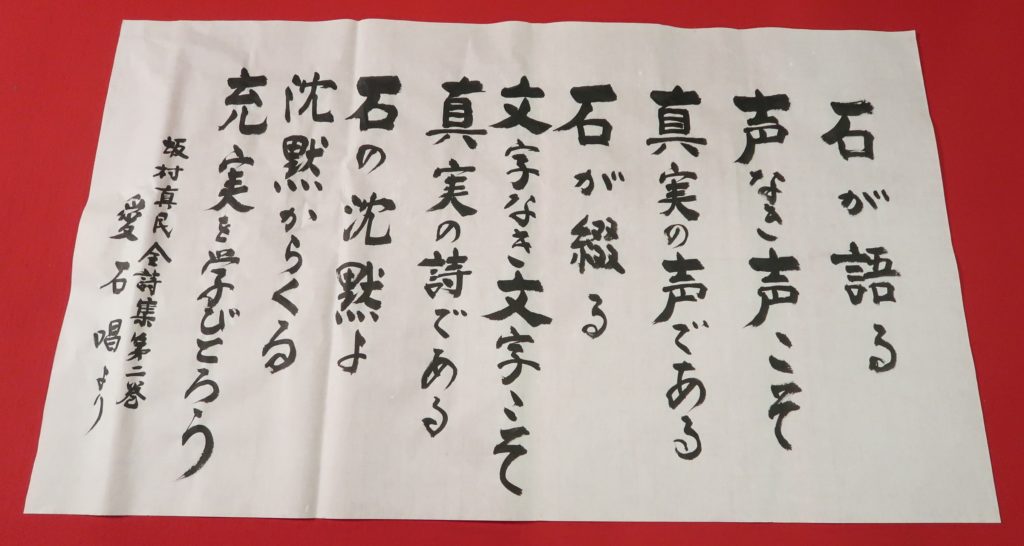 石が語る
声なき声こそ
真実の声である
石が綴る
文字なき文字こそ
真実の詩である
石の沈黙よ
沈黙からくる
充実を学びとろう
坂村真民全詩集第二巻
愛石唱より